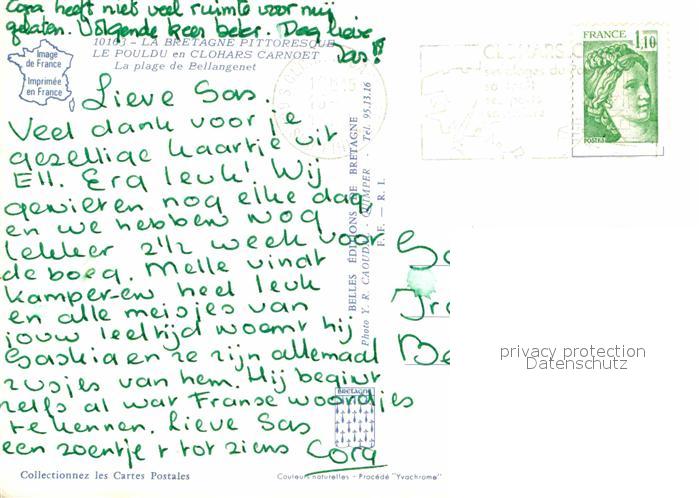 Cora heeft niet veel ruimte voor mij
gelaten. Volgende keer beter. Dag lieve
Sas!
10163 - LA BRETAGNE PITTORESQUE
LE POULDU en CLOHARS CARNOET
La plage de Bellangenet
Image
de France
Imprimée
en France
FRANCE
1,10
POSTES
CLOHARS C
Lieve Sas.
Veel dank voor je
gezellige kaartje uit
Ell. Erg leuk! Wij
genieten nog elke dag,
en we hebben nog
lekker 2 1/2 week voor
de boeg. Melle vindt
kamperen heel leuk
en alle meisjes van
jouw leeftijd noemt hij
Saskia en ze zijn allemaal
zusjes van hem. Hij begint
zelfs al wat Franse woordjes
te kennen. Lieve Sas
een zoentje + tot ziens Cora
BELLES ÉDITIONS DE BRETAGNE
Photo Y. R. CAOUDAL - QUIMPER - Tel. 95.13.16
F.F. — R. I.
BRETAGNE
Be
privacy protection
Datenschutz
Collectionnez les Cartes Postales
Couleurs naturelles - Procédé "Yvachrome"